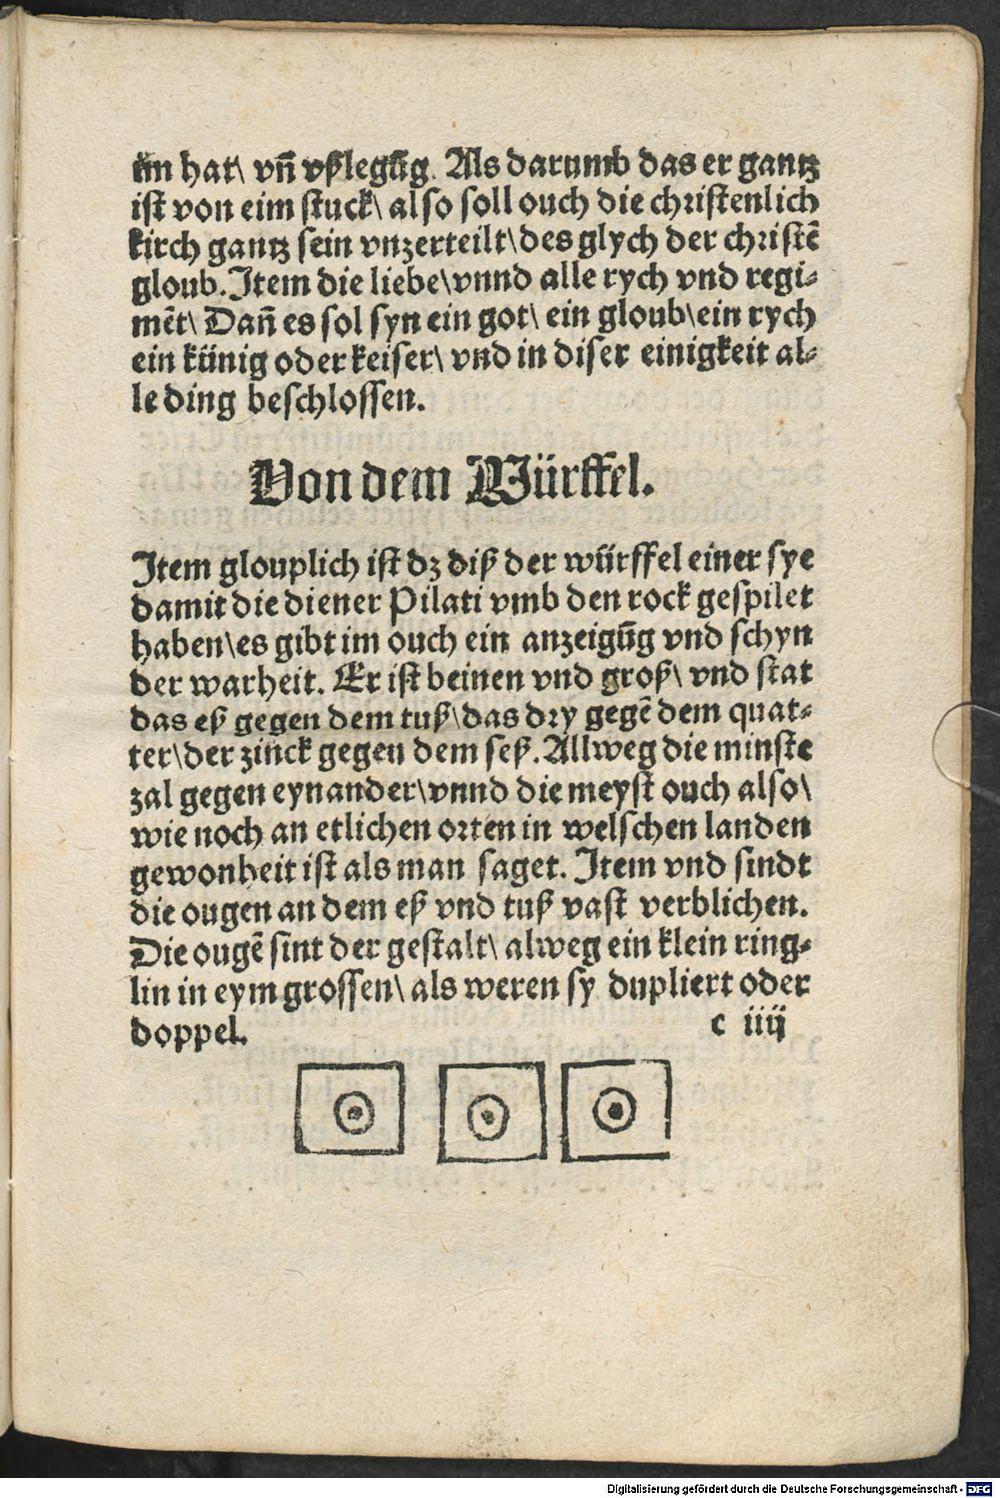 im hat\ vn̄ vßlegūg. Als darumb das er gantz
ist von eim stuck\ also soll ouch die christenlich
kirch gantz sein vnzerteilt\ des glych der christē
gloub. Item die liebe\ vnnd alle rych vnd regi⸗
mēt\ Dan̄ es sol syn ein got\ ein gloub\ ein rych
ein künig oder keiser\ vnd in diser einigkeit al⸗
le ding beschlossen.
Von dem Würffel.
Item glouplich ist dz diß der würffel einer sye
damit die diener Pilati vmb den rock gespilet
haben\ es gibt im ouch ein anzeigūg vnd schyn
der warheit. Er ist beinen vnd groß\ vnd stat
das eß gegen dem tuß\ das dry gegē dem quat⸗
ter\ der zinck gegen dem seß. Allweg die minste
zal gegen eynander\ vnnd die meyst ouch also\
wie noch an etlichen orten in welschen landen
gewonheit ist als man saget. Item vnd sindt
die ougen an dem eß vnd tuß vast verblichen.
Die ougē sint der gestalt\ alweg ein klein ring⸗
lin in eym grossen\ als weren sy dupliert oder
doppel.
c iiij
Digitalisierung gefördert durch die Deutsche Forschungsgemeinschaft - DFG